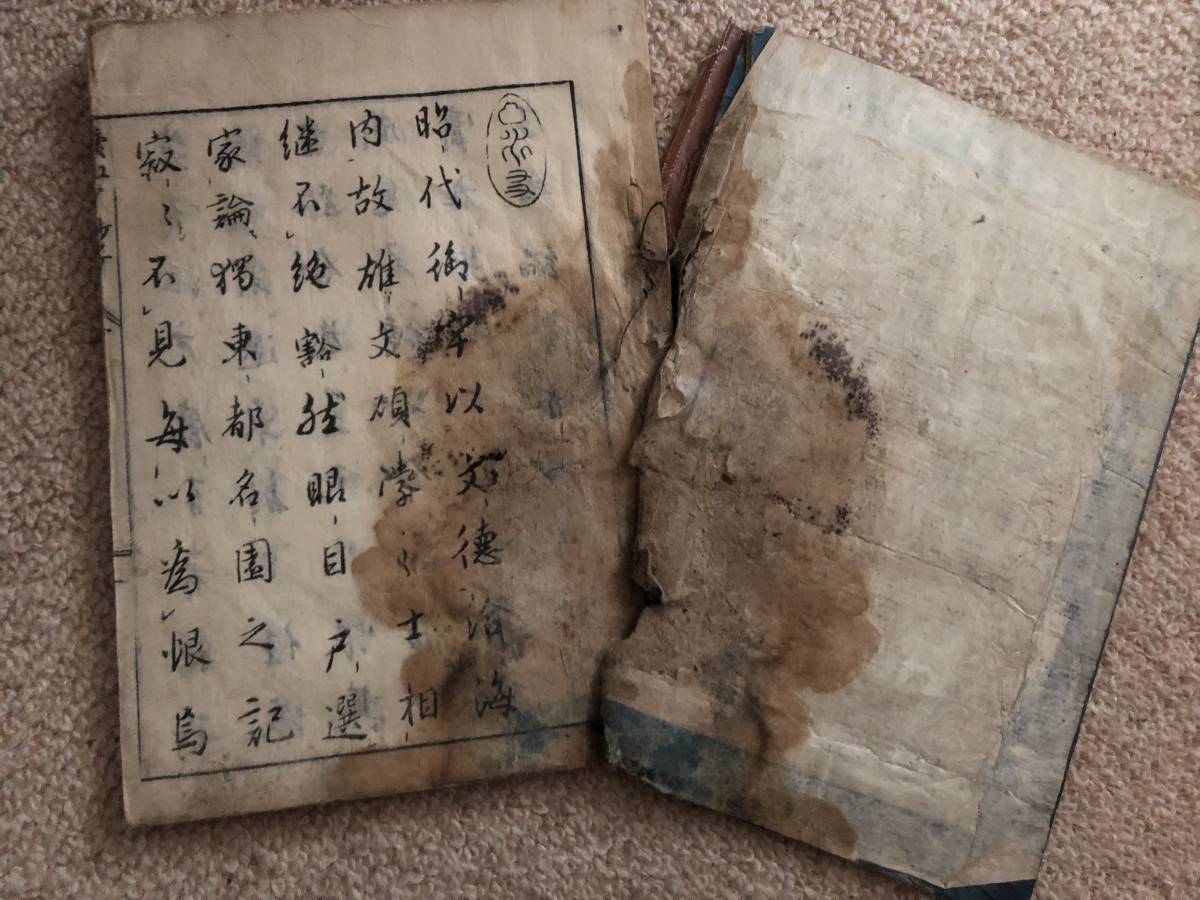 昭代御宇以文徳洽海
内故雄文碩学之士相
継不絶豁然眼目戸選
家論獨東都名園之記
寂〻不見毎以為恨烏